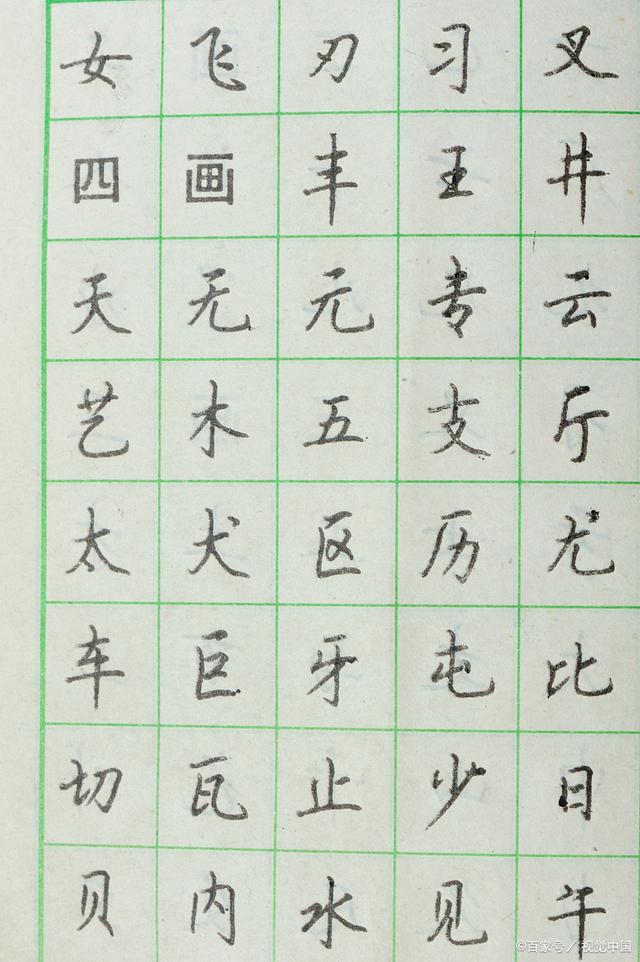 女飞刃习叉
四画丰王井
天无元专云
艺木五支厅
太犬区历尤
车巨牙屯比
切瓦止少日
贝内水见午
©百家号/视觉中国